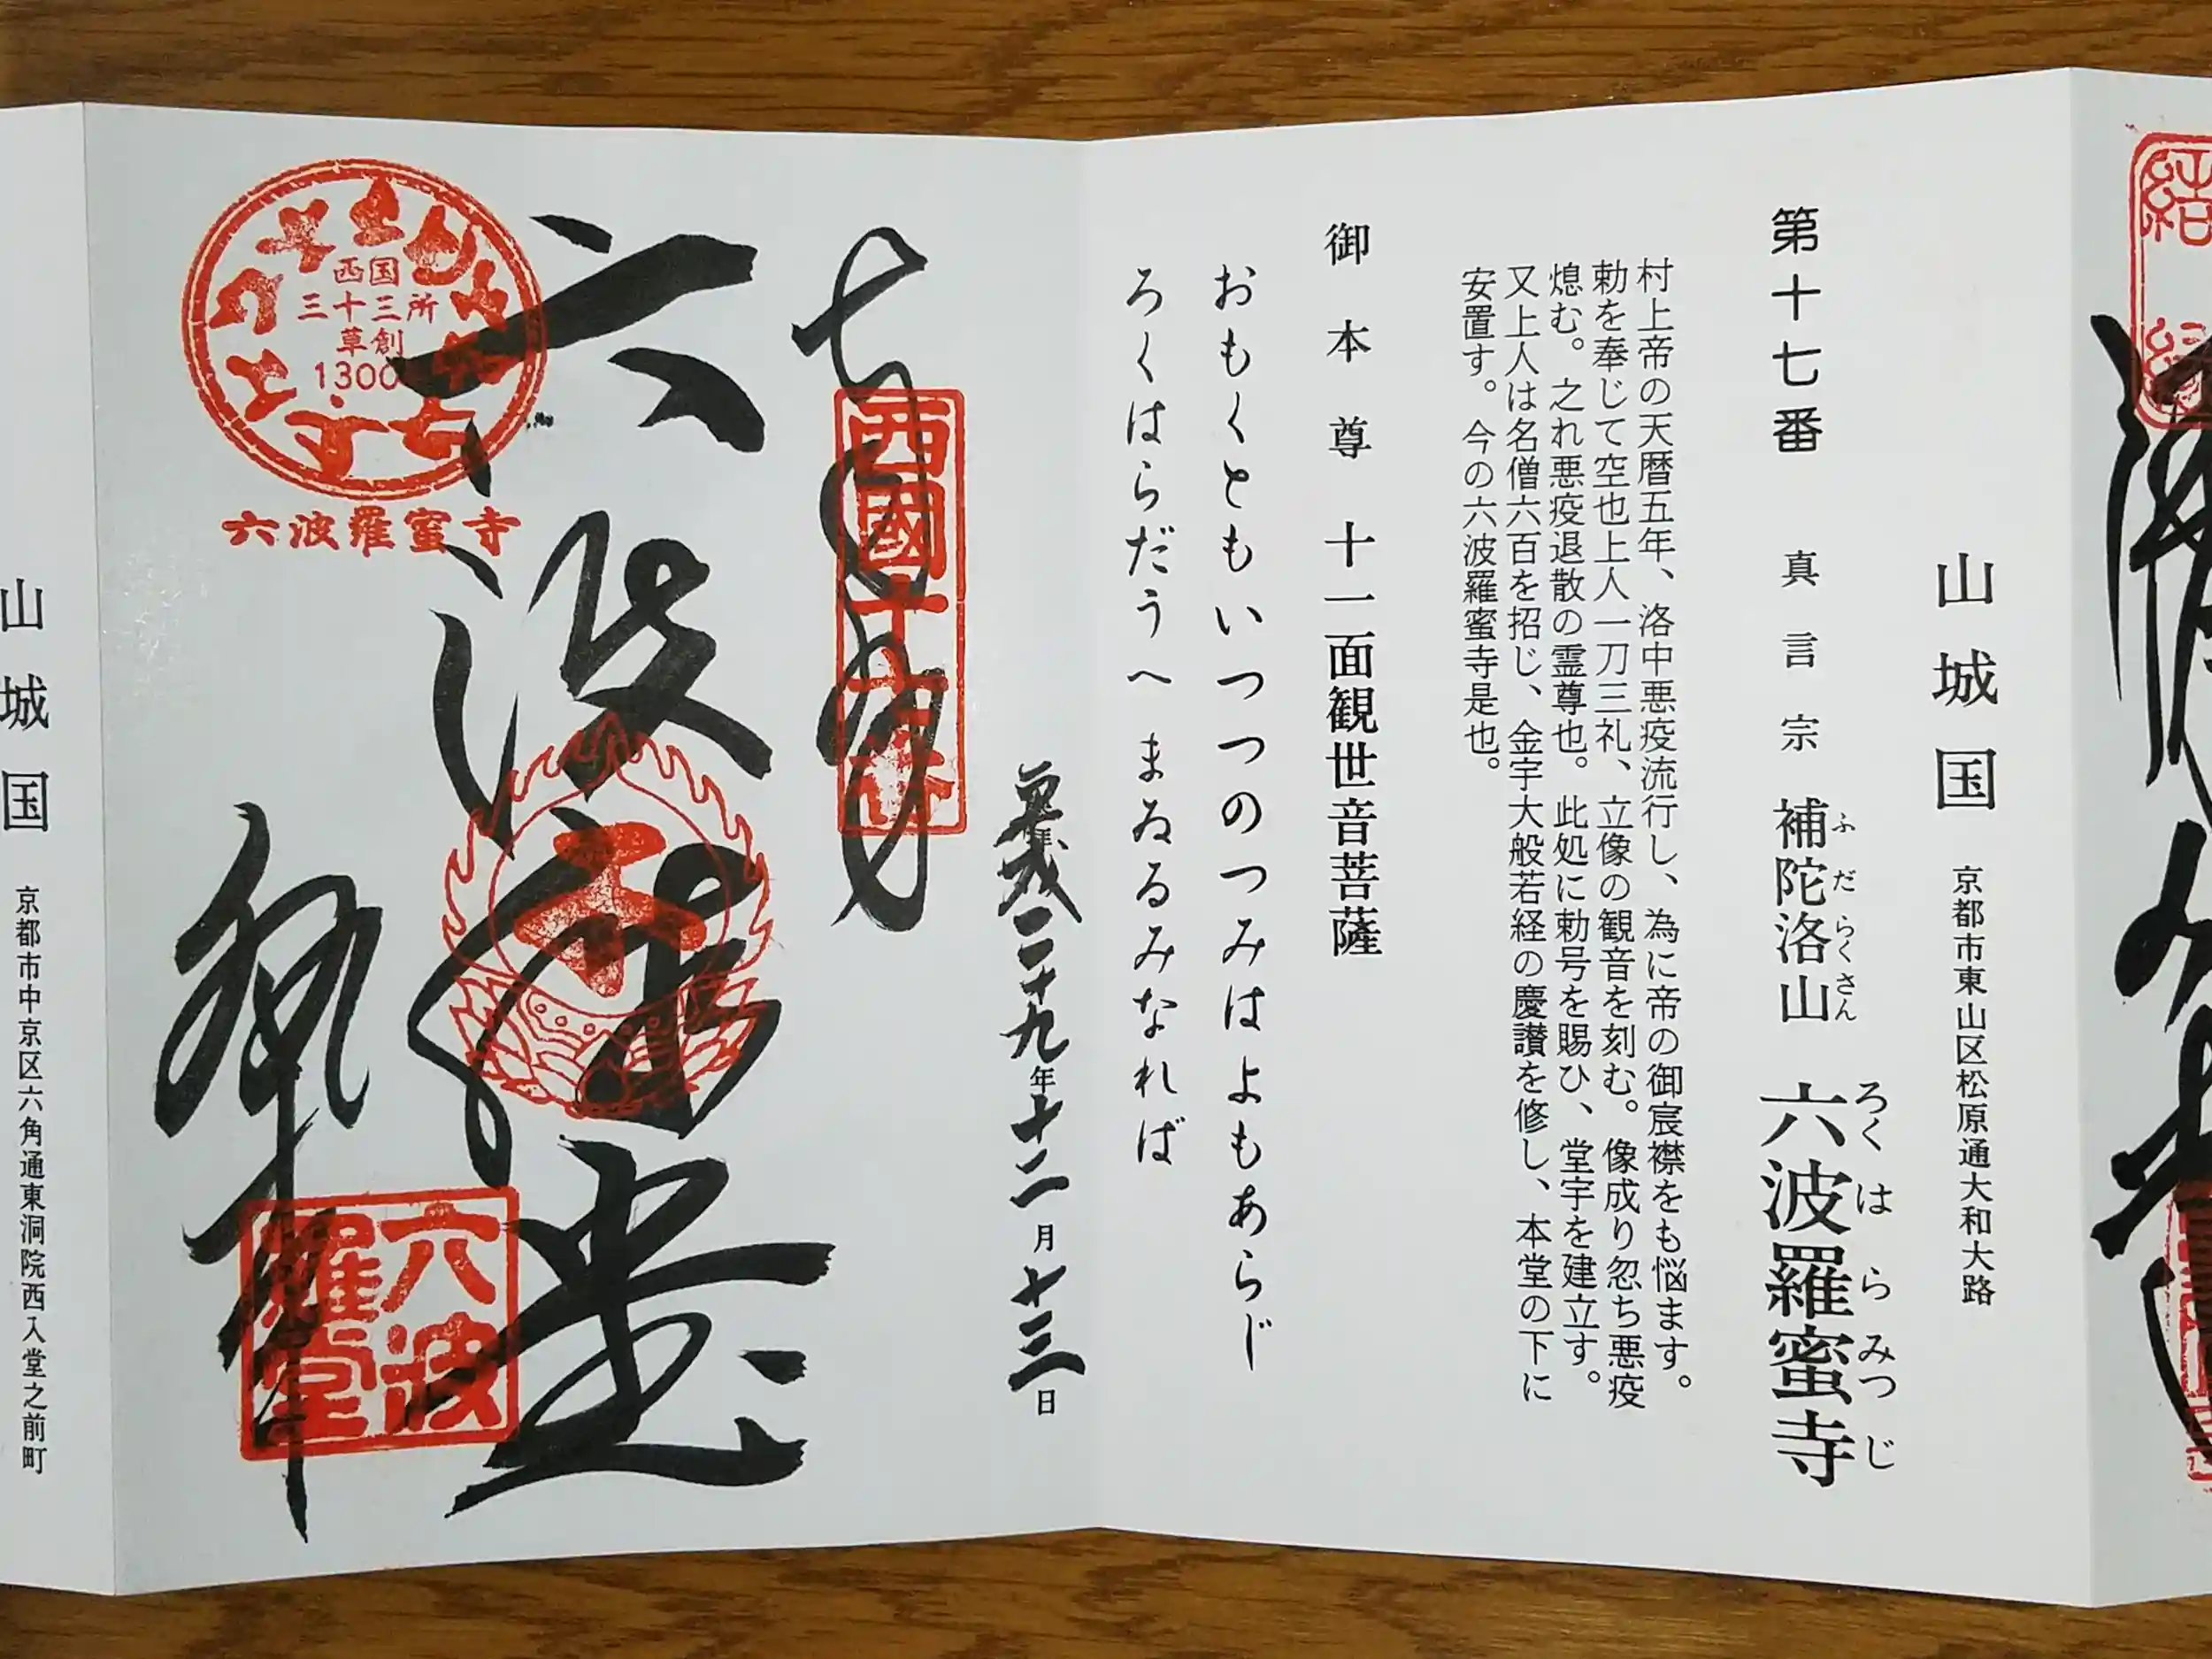 結
縁
山城国
京都市東山区松原通大和大路
第十七番 真言宗 補陀洛山 六波羅蜜寺
ふだらくさん ろくはらみつじ
村上帝の天暦五年、洛中悪疫流行し、為に帝の御宸襟をも悩ます。
勅を奉じて空也上人一刀三礼、立像の観音を刻む。像成り忽ち悪疫
熄む。之れ悪疫退散の霊尊也。此処に勅号を賜ひ、堂宇を建立す。
又上人は名僧六百を招じ、金字大般若経の慶讃を修し、本堂の下に
安置す。今の六波羅蜜寺是也。
御本尊 十一面観世音菩薩
おもくともいつつのつみはよもあらじ
ろくはらだうへまゐるみなれば
平成二十九年十二月十三日
西國十七番
六波羅堂
西国
三十三所
草創
1300
六波羅蜜寺
六波羅堂
山城国
京都市中京区六角通東洞院西入堂之前町